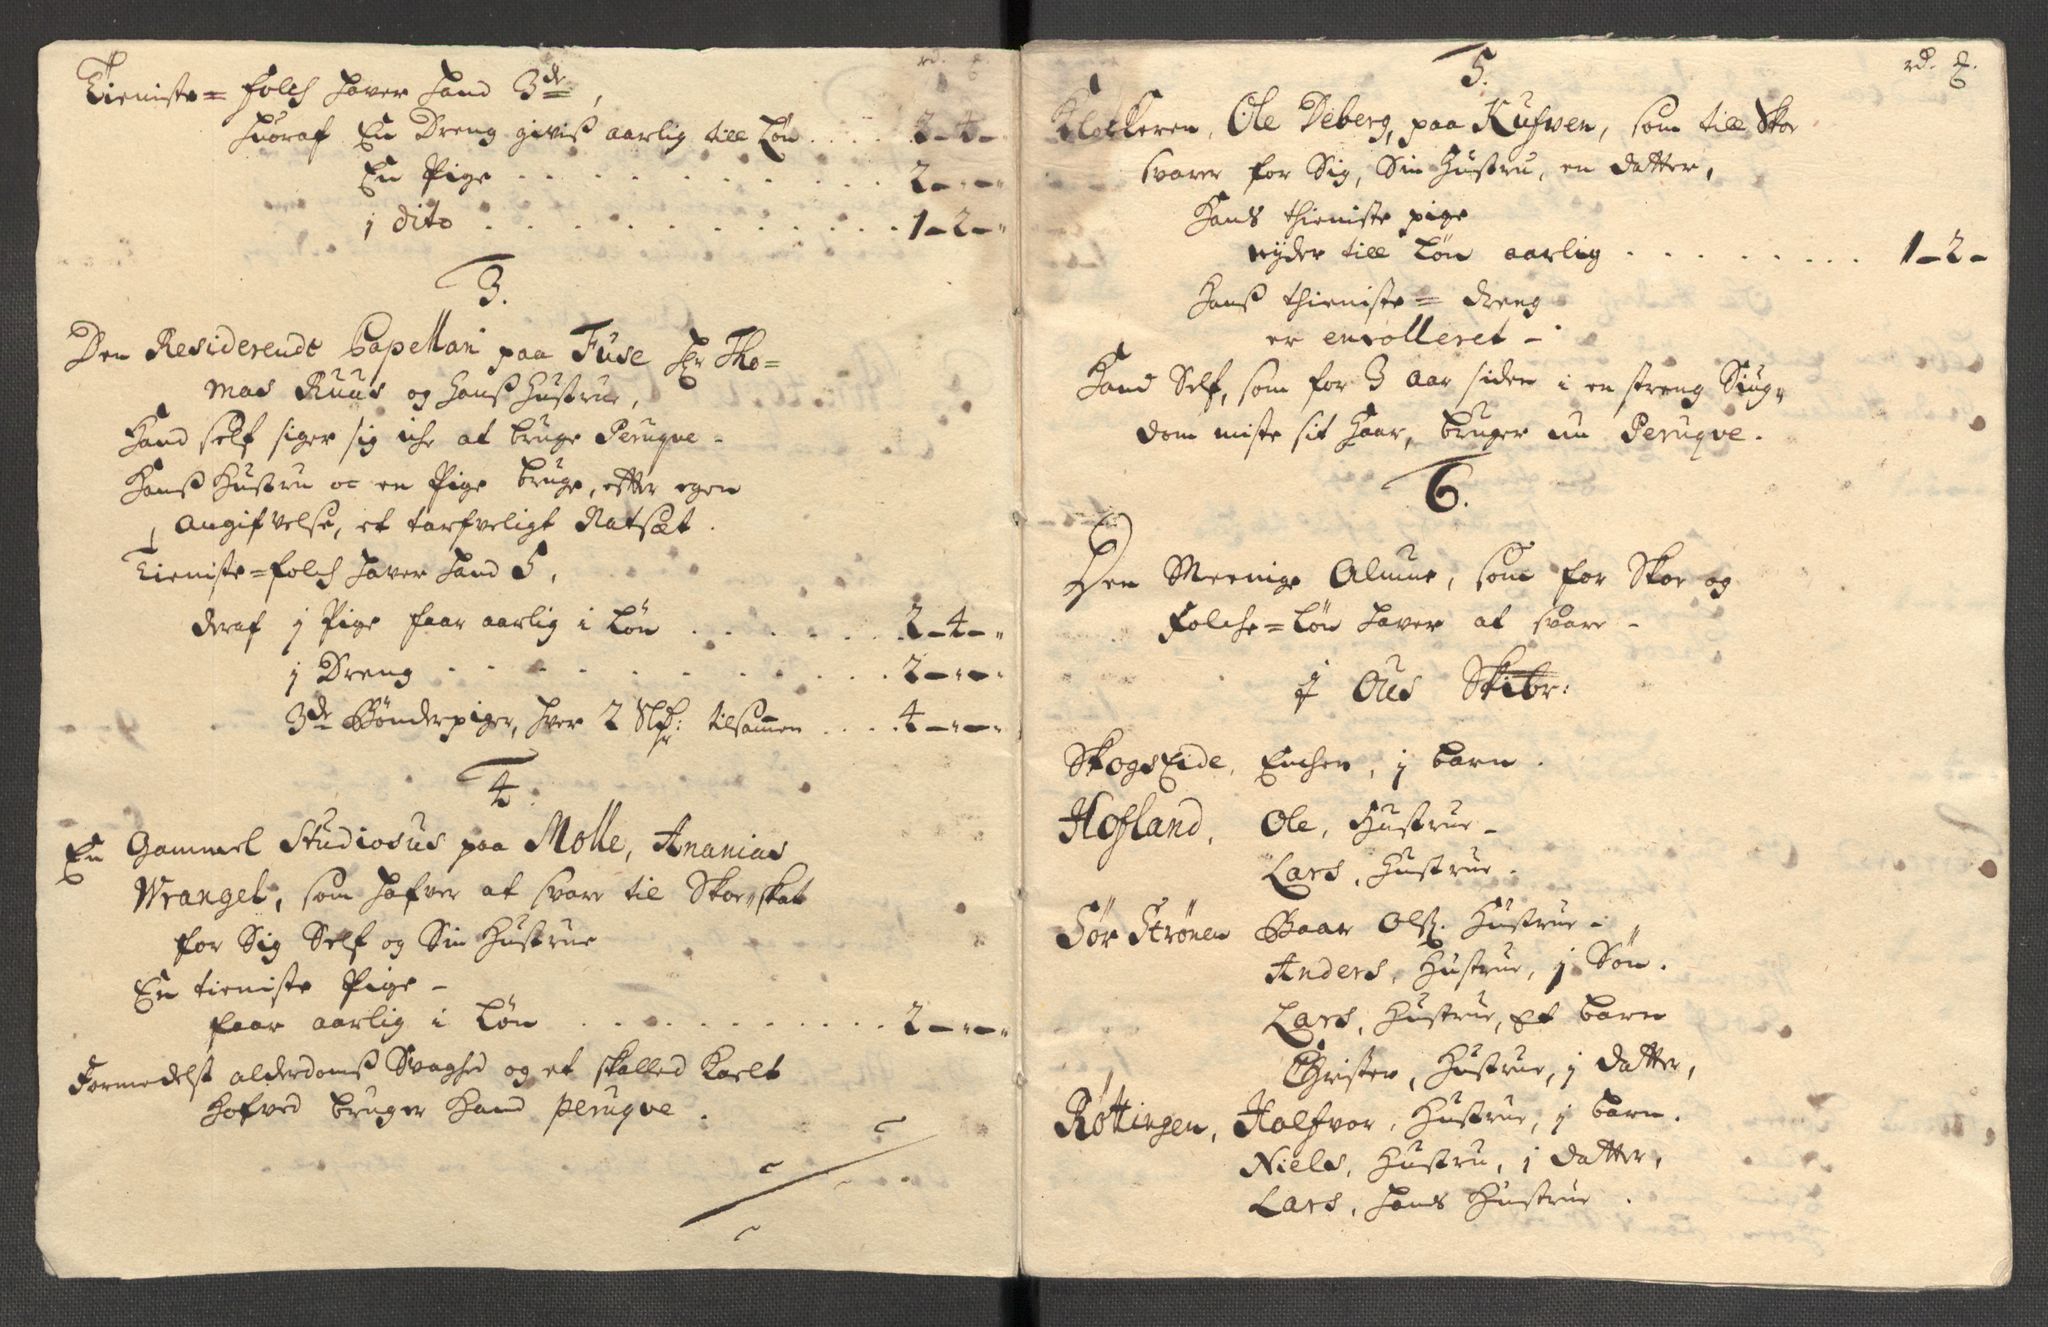 rd. ß.
Tieniste=folch haver hand 3de,
huoraf En Dreng givis aarlig till Løn . . . . 3-4-
En Pige . . . . . . . . . . . 2-"-"
1 dito . . . . . . . . . . . . 1-2-"
3.
Den Residerende Capellan paa Fuse Hr Tho=
mas Ruus og hans Hustrue,
Hand self siger sig iche at bruge Peruqve -
Hans Hustru oc en Pige bruge, efter egen
Angifvelse, et tarfveligt Natsæt.
Tieniste=folch haver hand 5,
deraf 1 Pige faar aarlig i Løn . . . . . . 2-4-"
1 Dreng . . . . . . . . . . 2-"-"
3de Bønderpiger, hver 2 Slhr: tilsamen . . . . 4-"-"
4.
En Gammel Studiosus paa Molle, Ananias
Wrangel, som hafver at svare til Skoe,skat
for Sig Self og Sin Hustrue
En tieniste Pige -
faar aarlig i Løn . . . . . . . . . . 2-"-"
Formedelst alderdoms Svaghed og et skalled kaelt
Hofved bruger Hand peruqve.
5.
rd. ß.
Klockeren, Ole Deberg, paa Kufven, som till Skoe
svarer for Sig, Sin Hustru, en datter,
Hans thieniste pige
nyder till Løn aarlig . . . . . . . . 1-2-
Hans thieniste= dreng
er enrolleret -
Hand Self, som for 3 aar siden i en streng Siug,
dom miste sit Haar, bruger nu Peruqve.
6.
Den Meenige Almue, som for Skoe og
Folche=Løn haver at svare -
I Ous Skibr:
SkogsEide, Enchen, 1 barn.
Hofland, Ole, Hustrue -
Lars, Hustrue.
Sør Strønen Baar Ols. Hustrue -
Anders, Hustrue, 1 Søn.
Lars, Hustrue, Et barn
Christen, Hustrue, 1 datter,
Røttingen, Halfvor, Hustrue, 1 barn.
Niels, Hustru, 1 datter,
Lars, hans Hustrue.